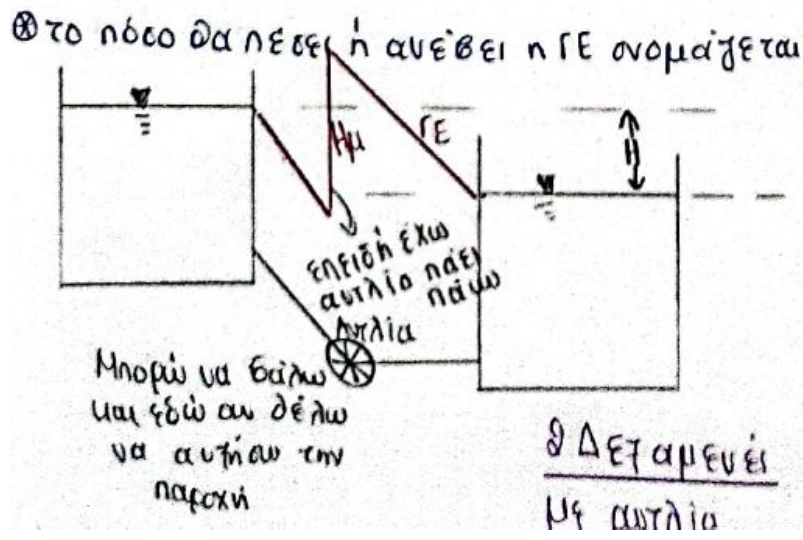 ⊛ το πόσο θα πέσει ή ανέβει η ΓΕ ονομάζεται
Ημ
ΓΕ
Η
επειδή έχω
αντλία πάει
πάνω
Αντλία
Μπορώ να βάλω
και εδώ αν θέλω
να αυξήσω την
παροχή
2 Δεξαμενές
με αντλία